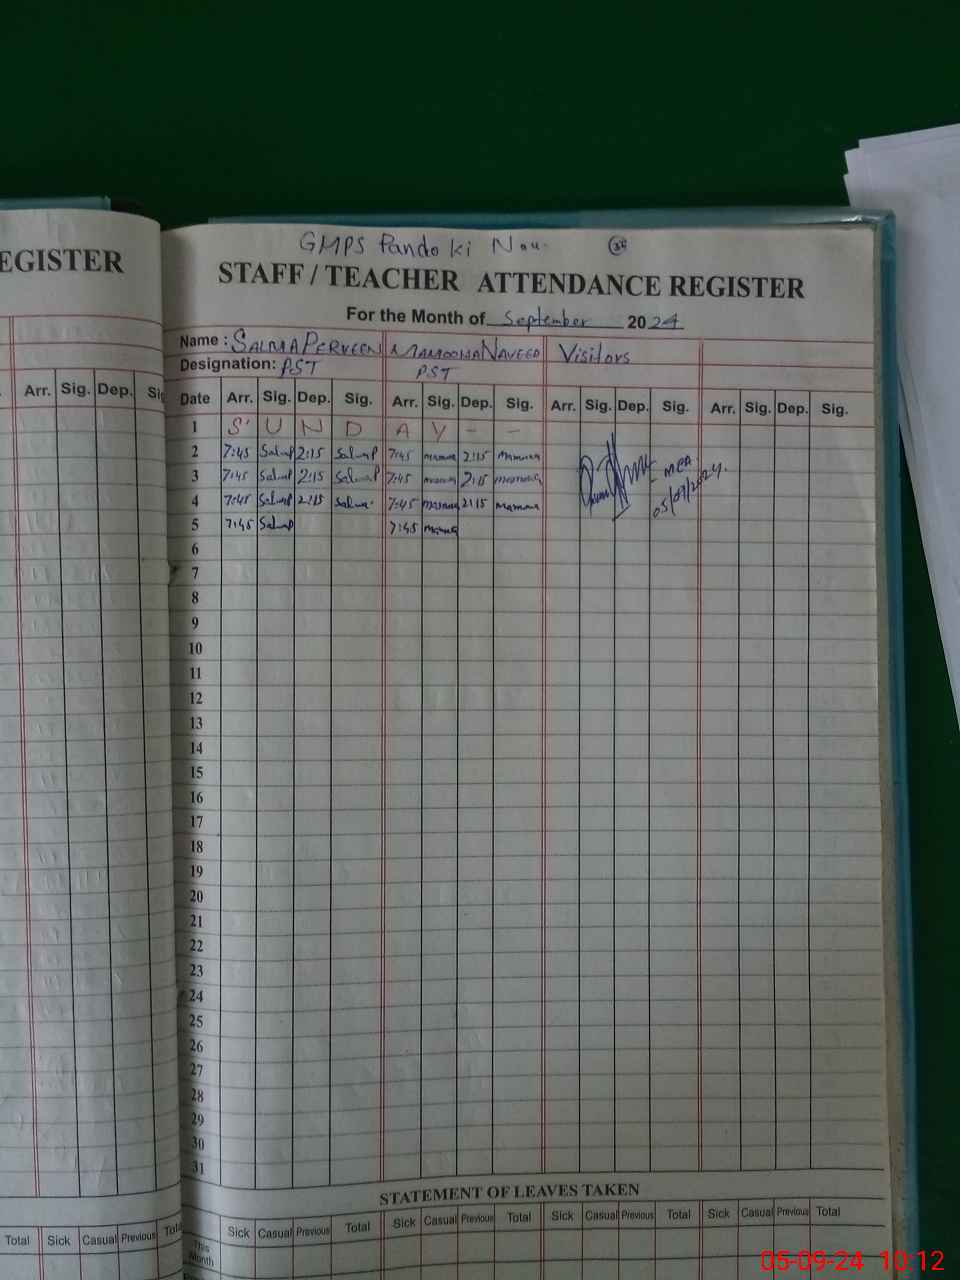 EGISTER
Arr. Sig. Dep. Sig
Total Sick Casual Previous Total
GMPS Pando ki Nou.
STAFF / TEACHER ATTENDANCE REGISTER
For the Month of September 2024
Name : SALMA PERVEEN MAMOONA NAVEED Visitors
Designation: PST PST
Date Arr. Sig. Dep. Sig. Arr. Sig. Dep. Sig. Arr. Sig. Dep. Sig. Arr. Sig. Dep. Sig.
1 S U N D A Y - -
2 7:45 SalmaP 2:15 SalmaP 7:45 Mamoona 2:15 Mamoona
3 7:45 SalmaP 2:15 SalmaP 7:45 Mamoona 2:15 Mamoona MEA
4 7:45 SalmaP 2:15 Salma 7:45 Mamoona 2:15 Mamoona 05/09/2024.
5 7:45 SalmaP 7:45 Mamoona
6
7
8
9
10
11
12
13
14
15
16
17
18
19
20
21
22
23
24
25
26
27
28
29
30
31
STATEMENT OF LEAVES TAKEN
Sick Casual Previous Total Sick Casual Previous Total Sick Casual Previous Total Sick Casual Previous Total
This
Month
05-09-24 10:12